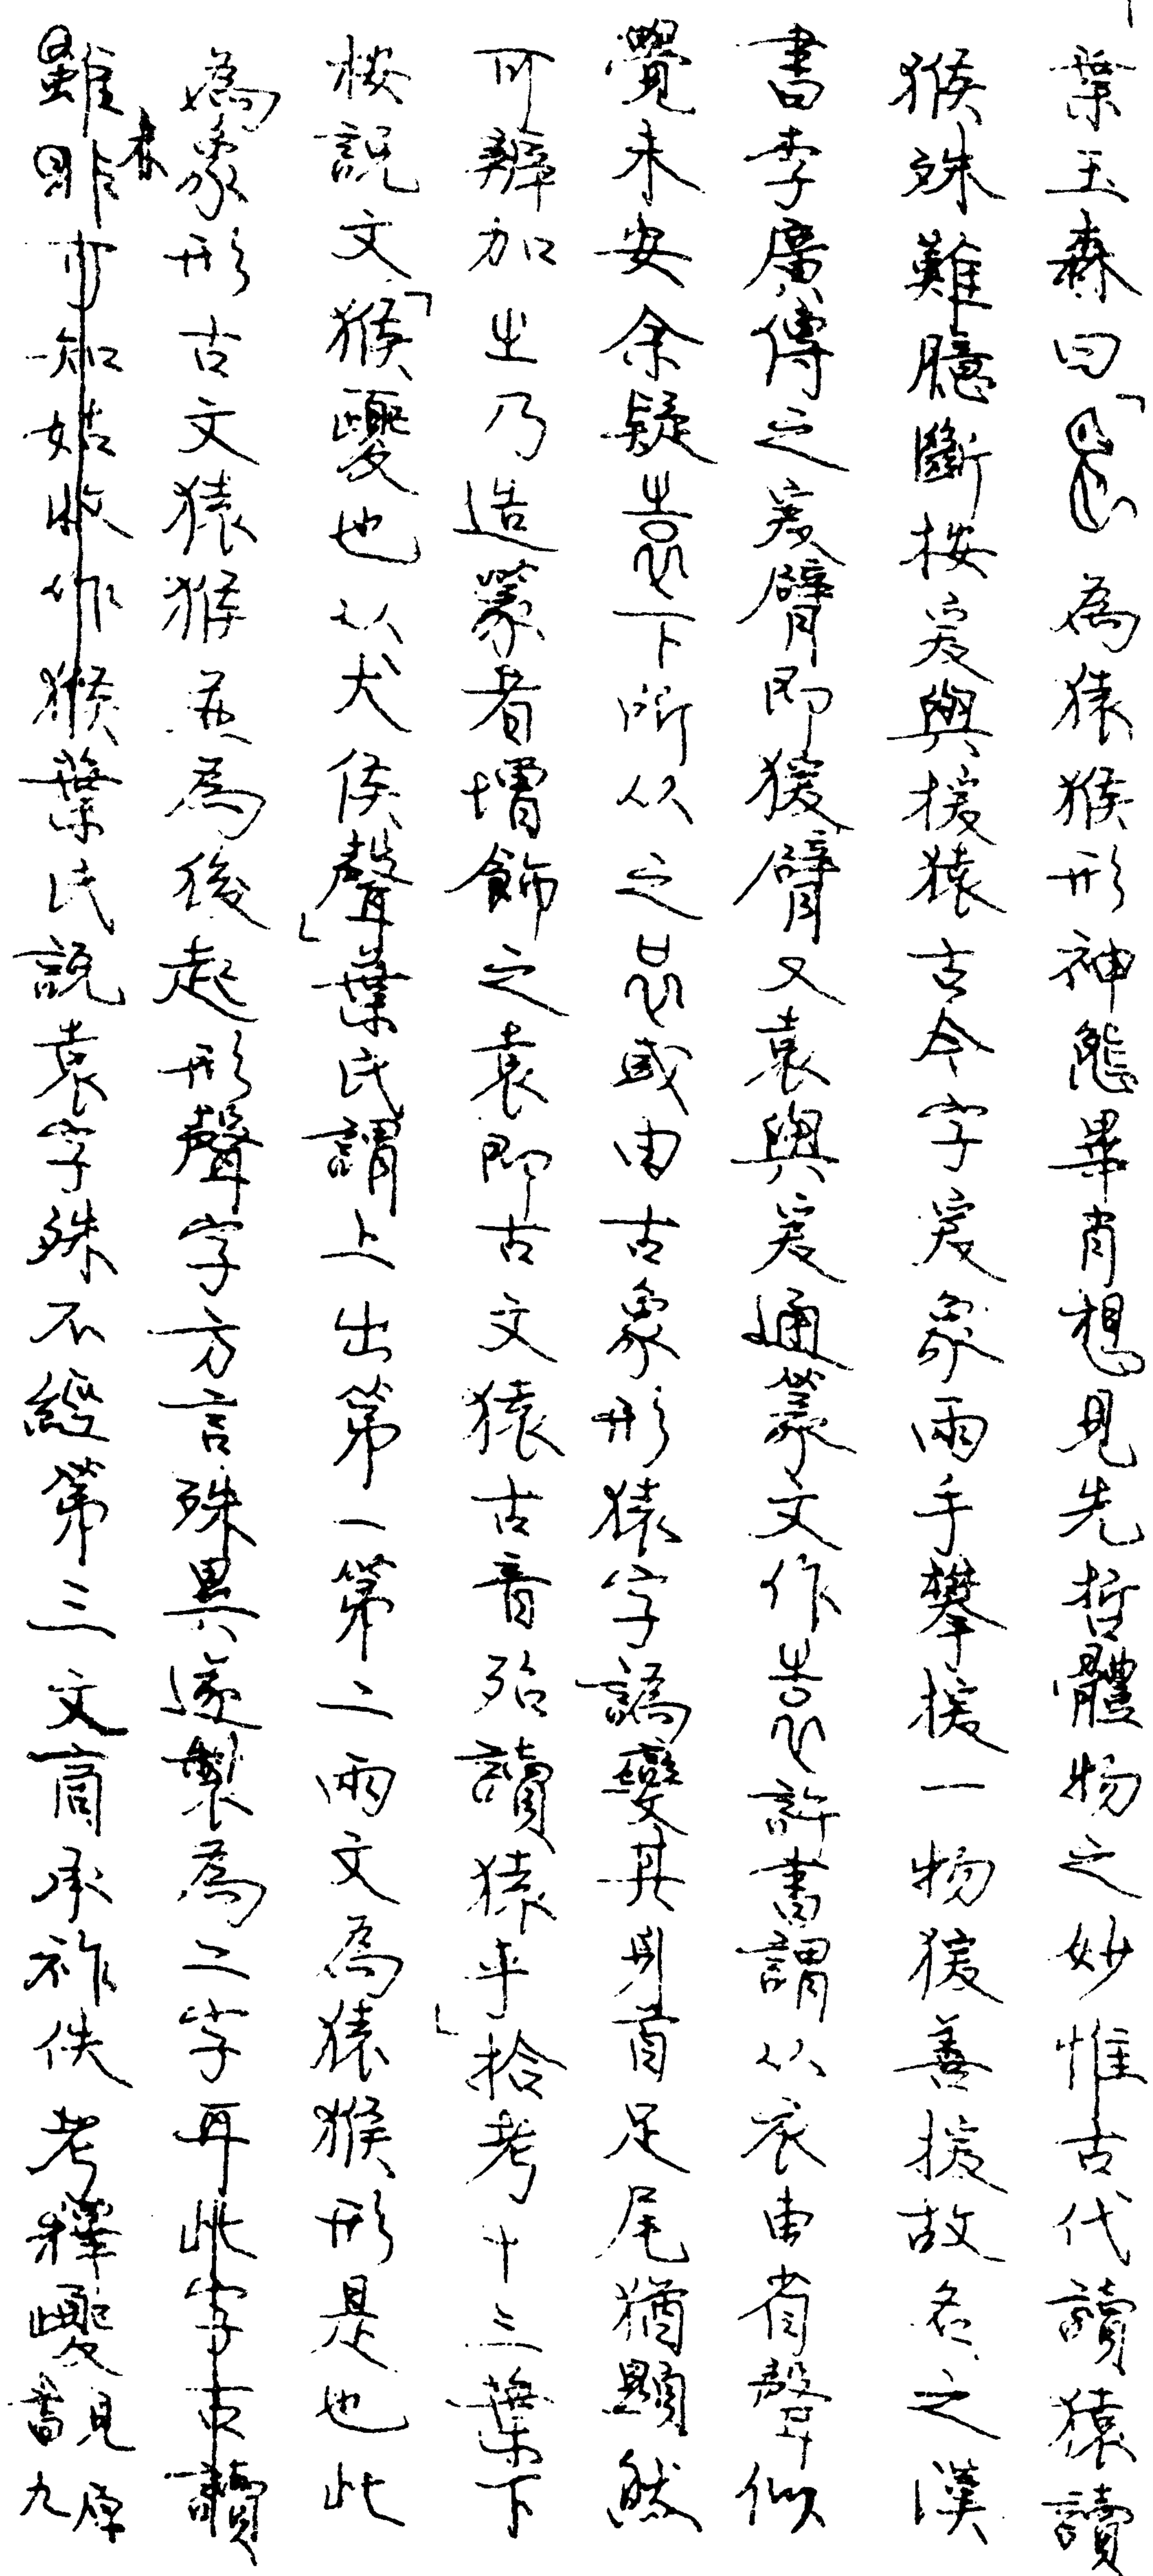 葉玉森曰「為猿猴形神態畢肖想見先哲體物之妙惟古代讀猿讀
猴殊難臆斷按爰與援猿古今字爰象兩手攀援一物猨善援故名之漢
書李廣傳之爰臂即猨臂又袁與爰通篆文作袁許書謂从衣叀省聲似
覺未安余疑袁下所从之或由古象形猿字譌變其身首足尾猶顯然
可辨加㞢乃造篆者增飾之袁即古文猿古音殆讀猿乎」拾考十三葉下
按說文「猴夒也从犬侯聲」葉氏謂上出第一第二兩文為猿猴形是也此
為象形古文猿猴並為後起形聲字方言殊異遂製為二字耳此字古讀
雖非可知姑收作猴葉氏說袁字殊不經第三文商承祚佚考釋夒見原書九